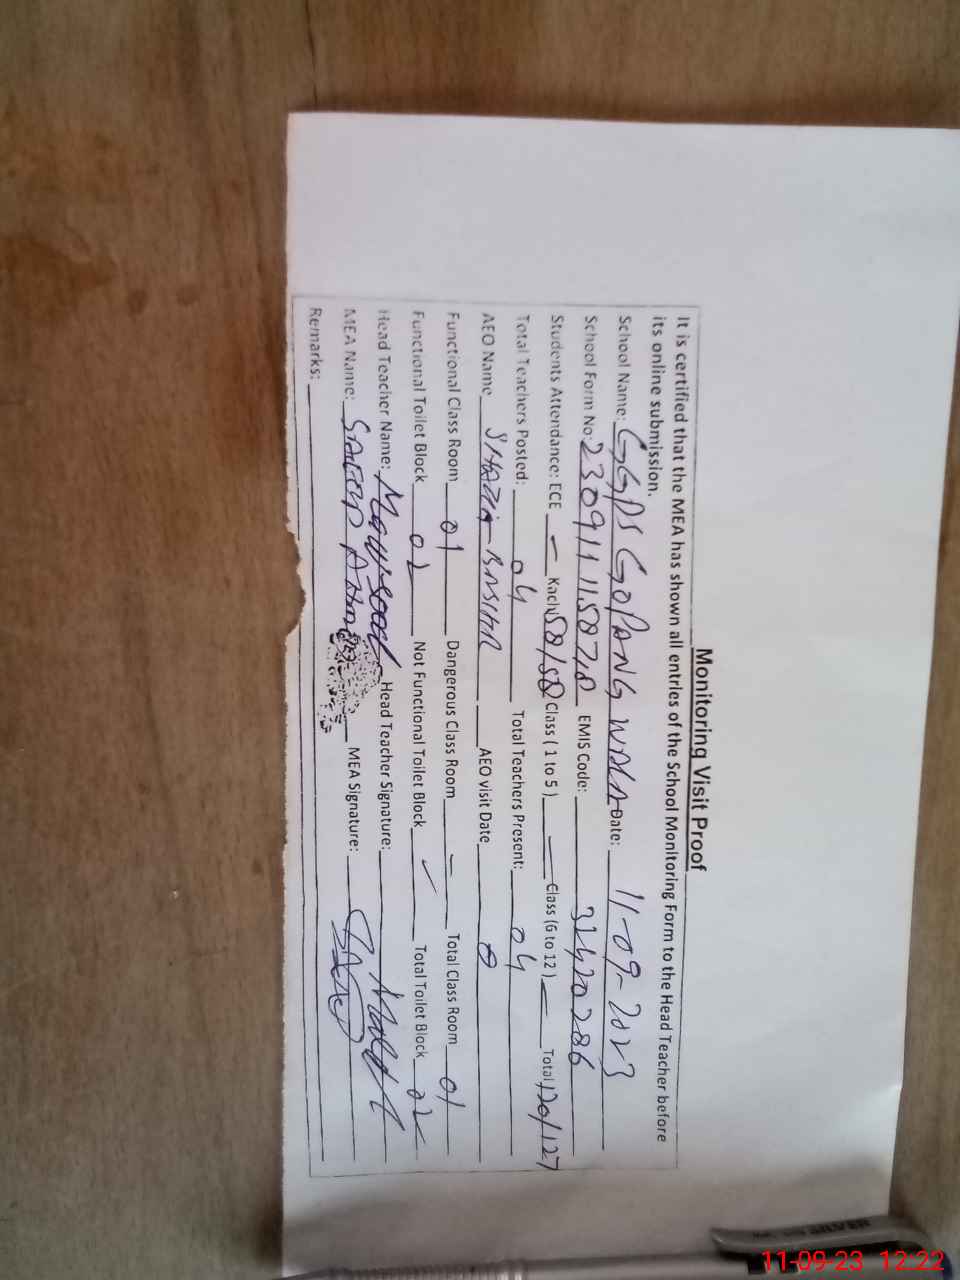 Monitoring Visit Proof
It is certified that the MEA has shown all entries of the School Monitoring Form to the Head Teacher before
its online submission.
School Name: GGPS GOPANG WALA Date: 11-09-2023
School Form No: EMIS Code: 32420286
Students Attendance: ECE — Kachi 58/58 Class ( 1 to 5 ) — Class (6 to 12 ) — Total 120/127
Total Teachers Posted: 04 Total Teachers Present: 04
AEO Name SHAZIA BASHIR AEO visit Date 0
Functional Class Room 01 Dangerous Class Room — Total Class Room 01
Functional Toilet Block 02 Not Functional Toilet Block Total Toilet Block 02
Head Teacher Name: Head Teacher Signature:
MEA Name: MEA Signature:
Remarks:
SILVER
11-09-23 12:22